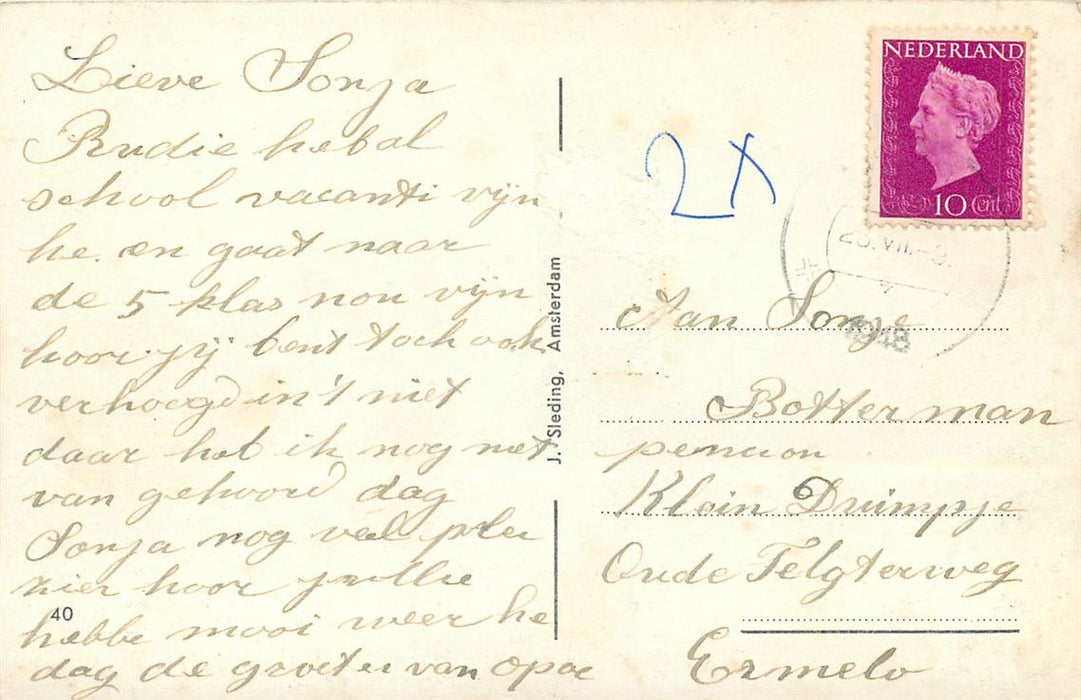 Lieve Sonja
Rudie hebal
school vacanti vijn
he. en gaat naar
de 5 klas nou vijn
hoor. jij bent toch ook
verhoogd in 't niet
daar heb ik nog niet
van gehoord dag
Sonja nog veel plei
zier hoor jullie
40
hebbe mooi weer he
dag de groeten van opoe
J. Sleding, Amsterdam
2X
NEDERLAND
10 Cent
1948
Aan Sonje
Botterman
pension
Klein Duimpje
Oude Telgterweg
Ermelo